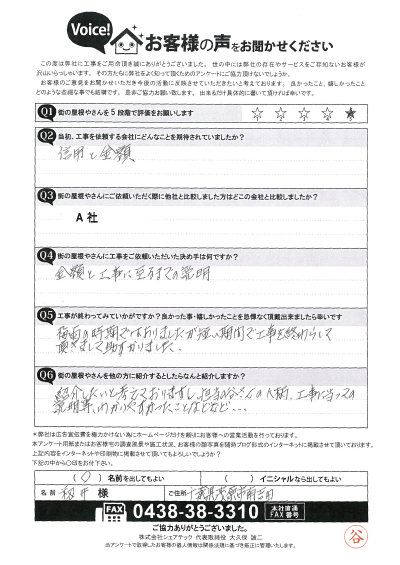 Voice!
お客様の声をお聞かせください
この度は弊社に工事をご用命頂き誠にありがとうございました。世の中には弊社の存在やサービスをご存知ないお客様が
沢山いらっしゃいます。その方たちに弊社をよく知って頂くためのアンケートにご協力頂けないでしょうか。
お客様のご意見をお聞かせいただき今後の活動に反映させていただきたいと考えております。良かったこと、嬉しかったこと
どのような些細な事でも結構です。是非ご協力お願い致します。出来るだけ具体的に書いて頂ければ幸いです。
Q1 街の屋根やさんを5段階で評価をお願いします ☆ ☆ ☆ ☆ ★
Q2 当初、工事を依頼する会社にどんなことを期待されていましたか?
信用と金額
Q3 街の屋根やさんにご依頼いただく際に他社と比較しました方はどこの会社と比較しましたか?
A社
Q4 街の屋根やさんに工事をご依頼いただいた決め手は何ですか?
金額と工事に至るまでの説明
Q5 工事が終わってみていかがですか?良かった事・嬉しかったことを忌憚なく頂戴出来ましたら幸いです
梅雨の時期ではありましたが短い期間で工事を終わらして
頂きまして助かりました。
Q6 街の屋根やさんを他の方に紹介するとしたらなんと紹介しますか?
紹介したいと考えておりますし、担当の谷さんの人柄、工事に当っての
説明等、わかりやすかったことなどなど...
※弊社は広告宣伝費を極力かけない為にホームページだけを頼りにお客様への営業活動を行っております。
本アンケート用紙またはお客様宅の調査風景や施工状況、お客様の顔写真を随時ブログ形式のインターネットに掲載させて頂いております。
上記内容をインターネットや印刷物に掲載させて頂いてもよろしいでしょうか?
下記の中から〇印をお付下さい。
(〇)名前を出してもよい ( )イニシャルなら出してもよい
名前 様 ご住所 千葉県
FAX 0438-38-3310 本社直通FAX番号
ご協力ありがとうございました。
株式会社シェアテック 代表取締役 大久保 誠二
当アンケートで取得したお客様の個人情報は関係法規に基づき厳正に管理いたします。
谷